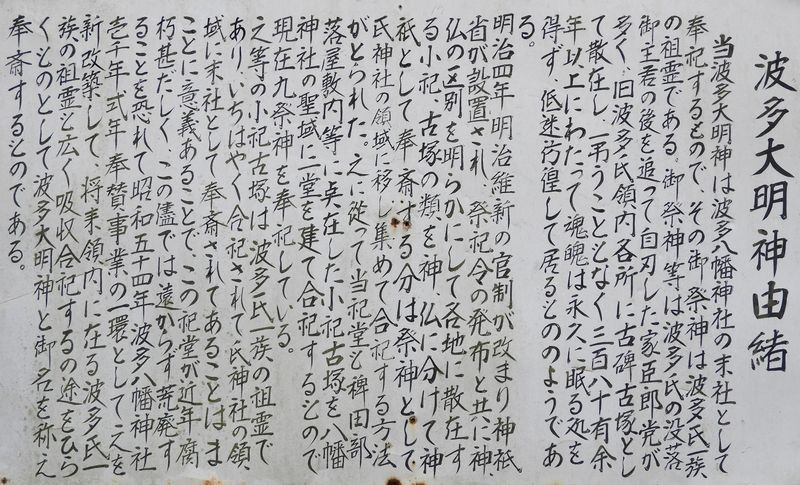 波多大明神由緒
当波多大明神は波多八幡神社の末社として
奉祀するもので、その御祭神は波多氏一族
の祖霊である。御祭神等は波多氏の没落
御主君の後を追って自刃した家臣郎党が
多く、旧波多氏領内各所に古碑古塚とし
て散在し一弔うこともなく三百八十有余
年以上にわたって魂魄は永久に眠る処を
得ず、低迷彷徨して居るもののようであ
る。
明治四年明治維新の官制が改まり神祇
省が設置され、祭祀令の発布と共に神、
仏の区別を明らかにして各地に散在す
る小祀古塚の類を神、仏に分けて神
祇として奉斎する分は祭神として
氏神社の領域に移し集めて合祀する方法
がとられた。之に従って当祀堂と稗田部
落屋敷内等に点在した小祀古塚を八幡
神社の聖域に一堂を建て合祀するもので
現在九祭神を奉祀している。
之等の小祀古塚は波多氏一族の祖霊で
あり、いちはやく合祀されて氏神社の領
域に末社として奉斎されてあることはま
ことに意義あることで、この祀堂が近年腐
朽甚だしく、この儘では遠からず荒廃す
ることを恐れて昭和五十四年波多八幡神社
壱千年式年奉賛事業の一環として之を
新改築して、将来領内に在る波多氏一
族の祖霊を広く吸収合祀するの途をひら
くものとして波多大明神と御名を称え
奉斎するものである。